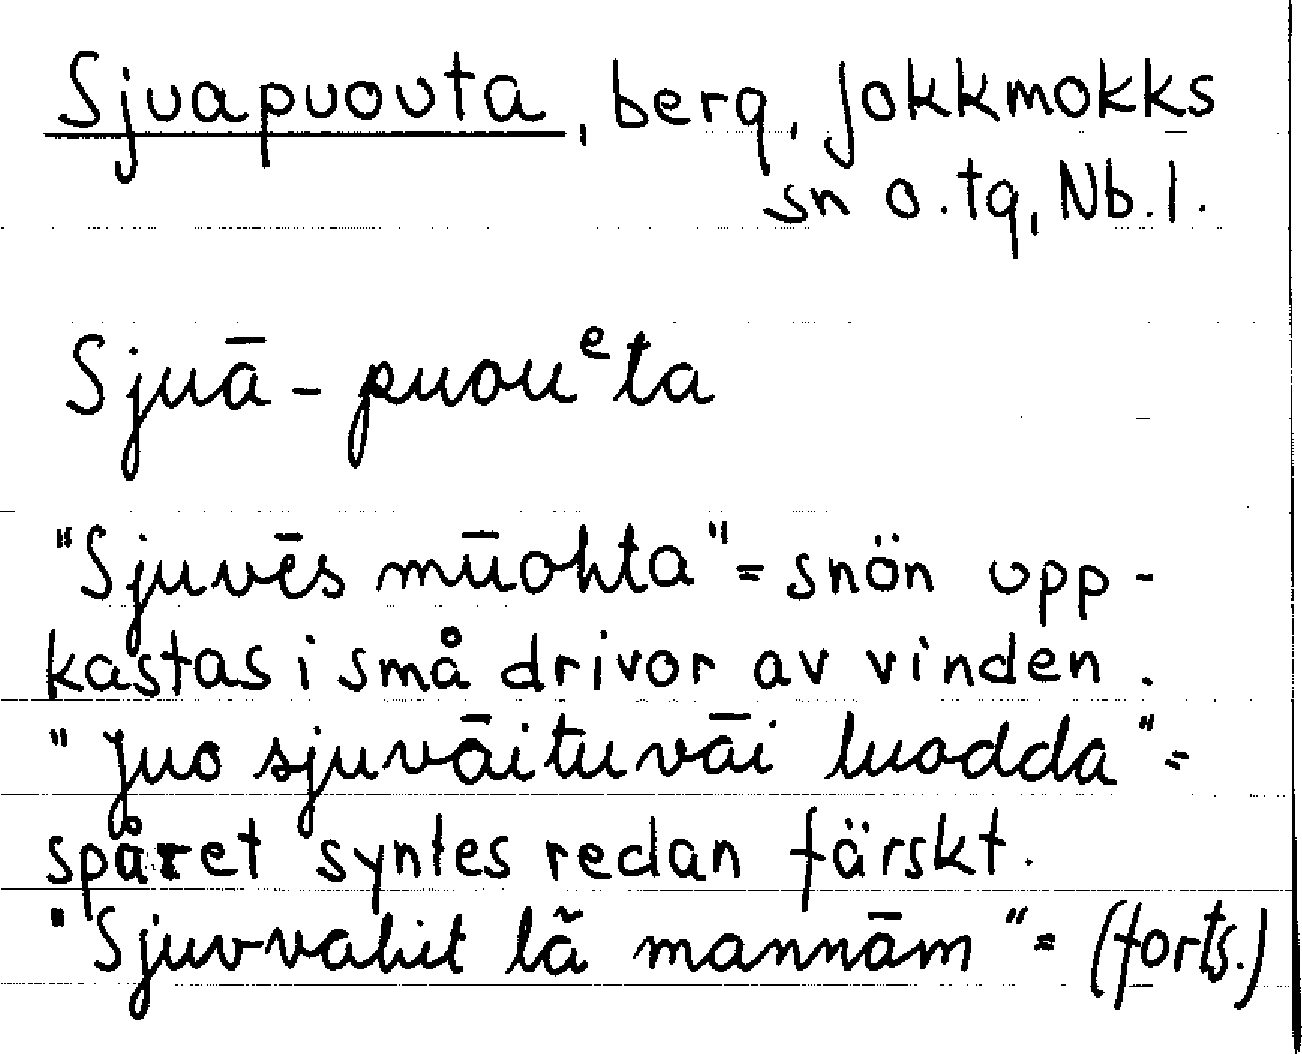 Sjuapuouta, berg, Jokkmokks
sn o. tg, Nb. l.
Sjuā - puouᵉta
"Sjuvēs mūohta" = snön upp-
kastas i små drivor av vinden.
"Juo sjuvāituvāi luodda" =
spåret syntes redan färskt.
"Sjuvvahit lã mannām" = (forts.)